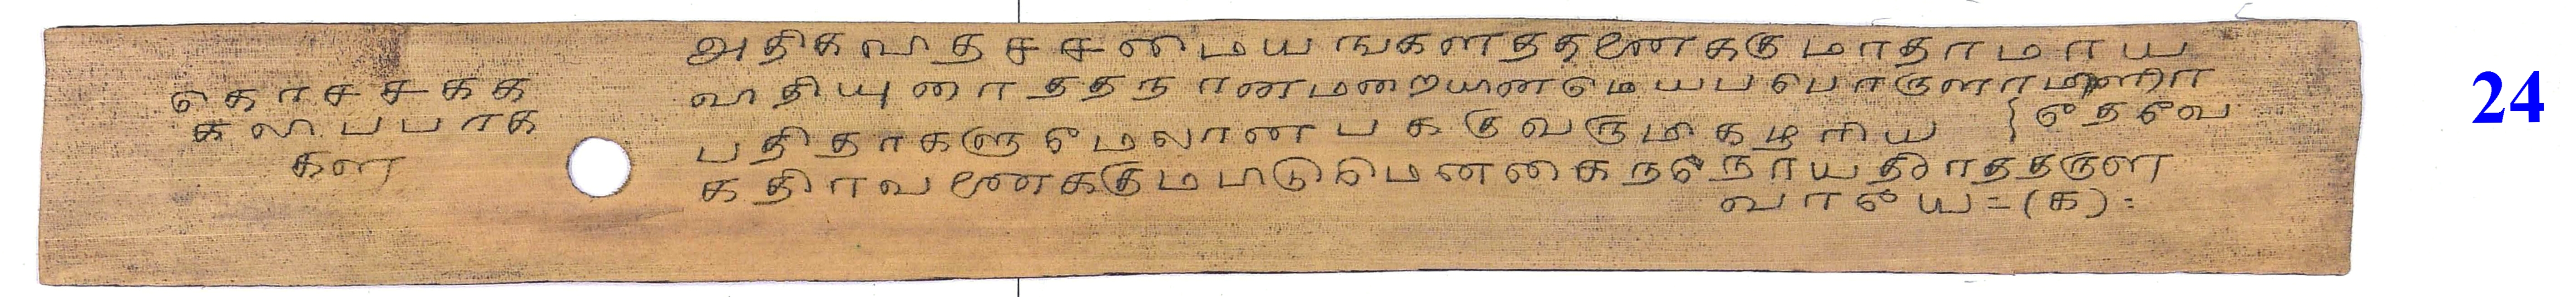 கொச்சகக
கலிப்பாக
கள
அதிகவிதச சமையஙகளததனைககுமாதாரமாய
விதியுரைததநானமறையினமெயபபொருளாமூரா
பதிதாகளுமேலான பககுவருமிகழாிய { தேவே
கதிரவனைககுமபிடுமெனகைநநோயதிாததருள
வாயே = (க) :
24